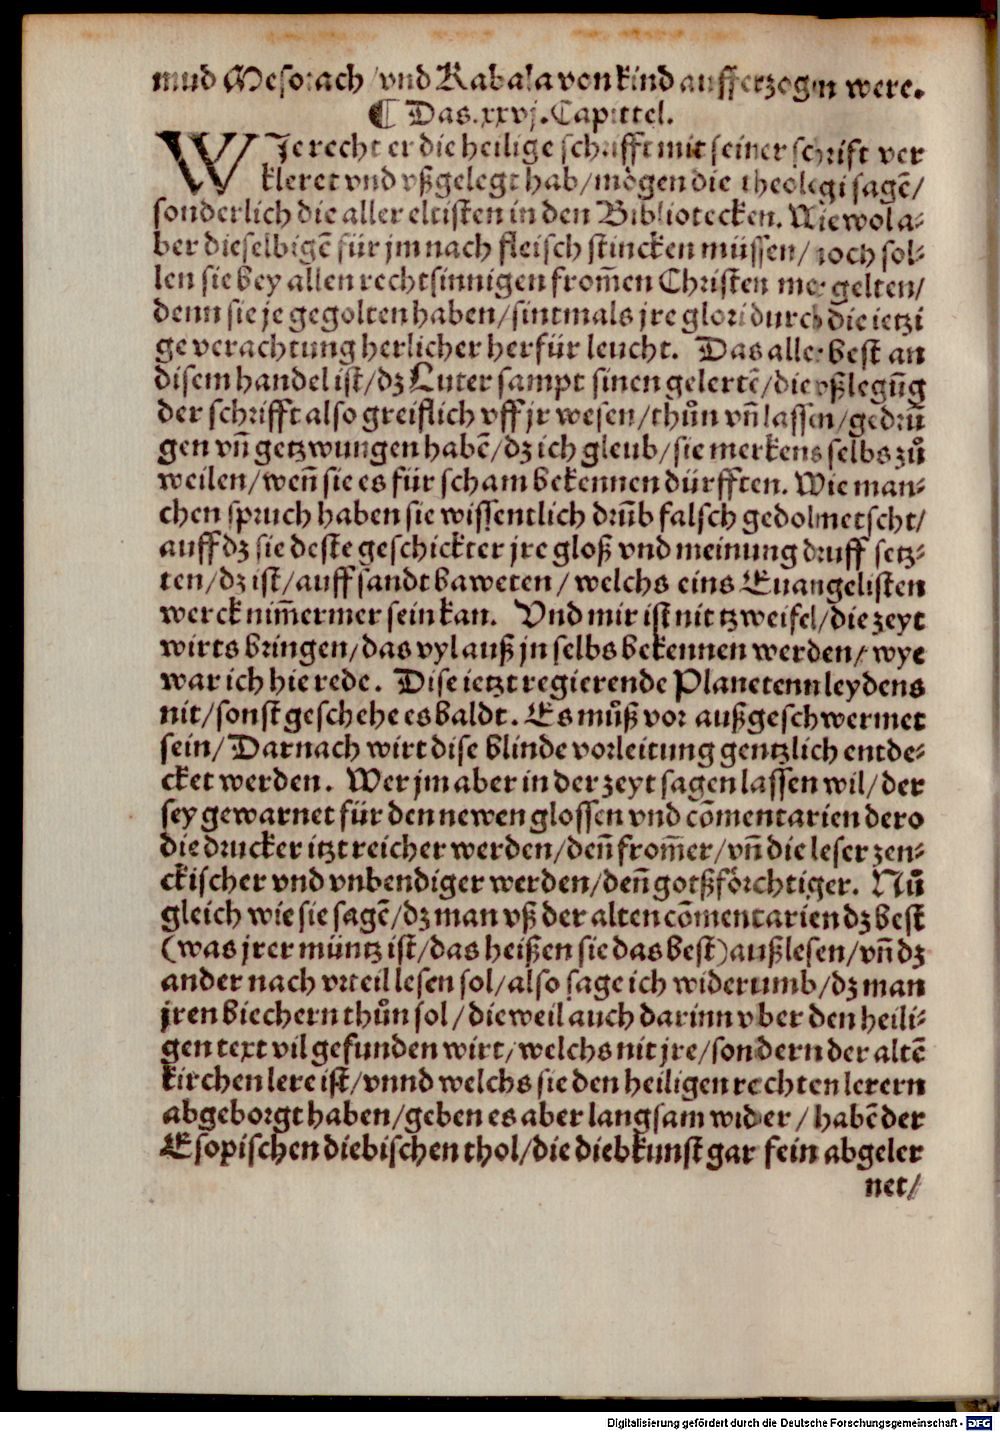 mud Mesorach / vnd Kabala von kind aufferzogen were.
¶ Das. xxvj. Capittel.
WJe recht er die heilige schrifft mit seiner schrift ver
kleret vnd vßgelegt hab / mögen die theologi sagẽ /
sonderlich die aller eltisten in den Bibliotecken. Wie wol a⸗
ber dieselbigẽ für jm nach fleisch stincken müssen / noch sol⸗
len sie bey allen rechtsinnigen from̃en Christen mer gelten /
denn sie je gegolten haben / sintmals jre glori durch die ietzi
ge verachtung herlicher herfür leucht. Das aller best an
disem handel ist / dz Luter sampt sinen gelertẽ / die vßlegũg
der schrifft also greiflich vff jr wesen / thůn vñ lassen / gedrũ
gen vñ getzwungen habẽ / dz ich gleub / sie merkens selbs zů
weilen / weñ sie es für scham bekennen dürfften. Wie man⸗
chen spruch haben sie wissentlich drũb falsch gedolmetscht /
auff dz sie deste geschickter jre gloß vnd meinung druff setz⸗
ten / dz ist / auff sandt baweten / welchs eins Euangelisten
werck nim̃ermer sein kan. Vnd mir ist nit tzweifel / die zeyt
wirts bringen / das vyl auß jn selbs bekennen werden / wye
war ich hie rede. Dise ietzt regierende Planetenn leydens
nit / sonst geschehe es baldt. Es můß vor außgeschwermet
sein / Darnach wirt dise blinde vorleitung gentzlich entde⸗
cket werden. Wer jm aber in der zeyt sagen lassen wil / der
sey gewarnet für den newen glossen vnd cõmentarien dero
die drucker itzt reicher werden / deñ from̃er / vñ die leser zen⸗
ckischer vnd vnbendiger werden / deñ gotßförchtiger. Nů
gleich wie sie sagẽ / dz man vß der alten cõmentarien dz best
(was jrer müntz ist / das heißen sie das best) außlesen / vñ dz
ander nach vrteil lesen sol / also sage ich widerumb / dz man
jren biechern thůn sol / die weil auch darinn vber den heili⸗
gen text vil gefunden wirt / welchs nit jre / sondern der altẽ
kirchen lere ist / vnnd welchs sie den heiligen rechten lerern
abgeborgt haben / geben es aber langsam wider / habẽ der
Esopischen diebischen thol / die diebkunst gar fein abgeler
net /
Digitalisierung gefördert durch die Deutsche Forschungsgemeinschaft - DFG